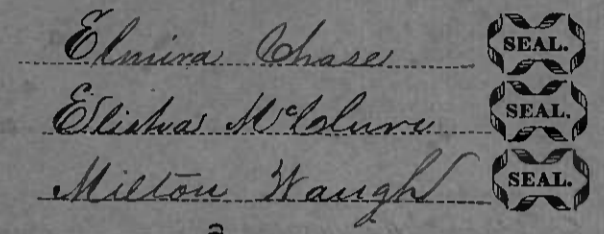 Elmira Chase SEAL.
Elisha McClure SEAL.
Milton Waugh SEAL.